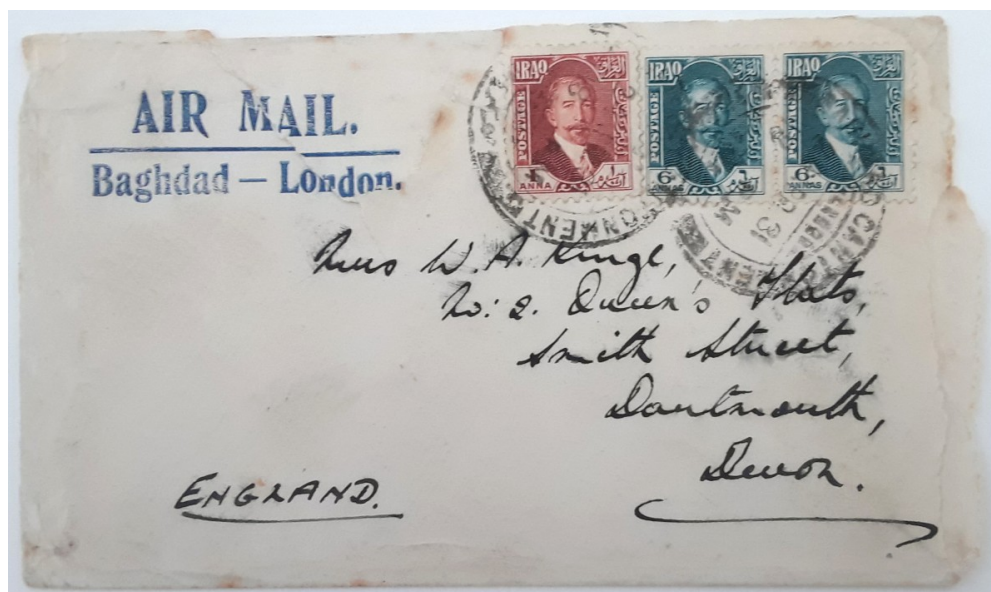 AIR MAIL.
Baghdad — London.
IRAQ العراق
POSTAGE
1 ANNA ١ آنة
IRAQ العراق
POSTAGE
6 ANNAS ٦
IRAQ العراق
POSTAGE
6 ANNAS ٦
31
W. A. Kinge,
2. Queen's Flats,
Smith Street,
Dartmouth,
Devon.
ENGLAND.